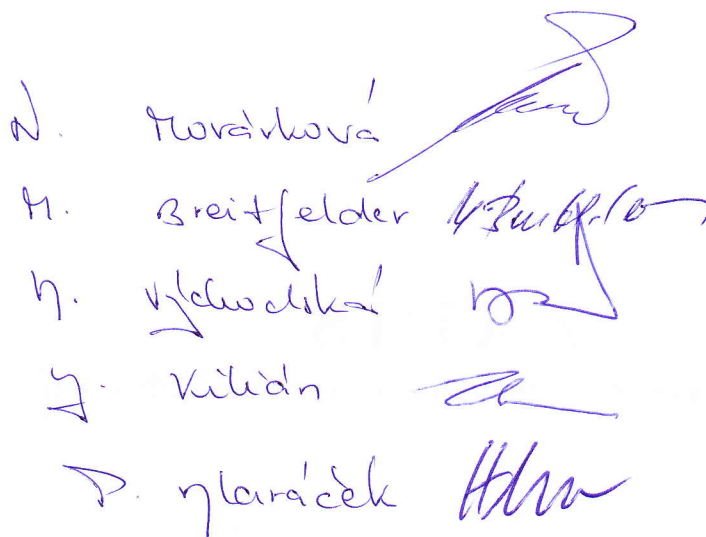 N. Morávková
M. Breitfelder
Východská
J. Kilián
P. Hlaváček